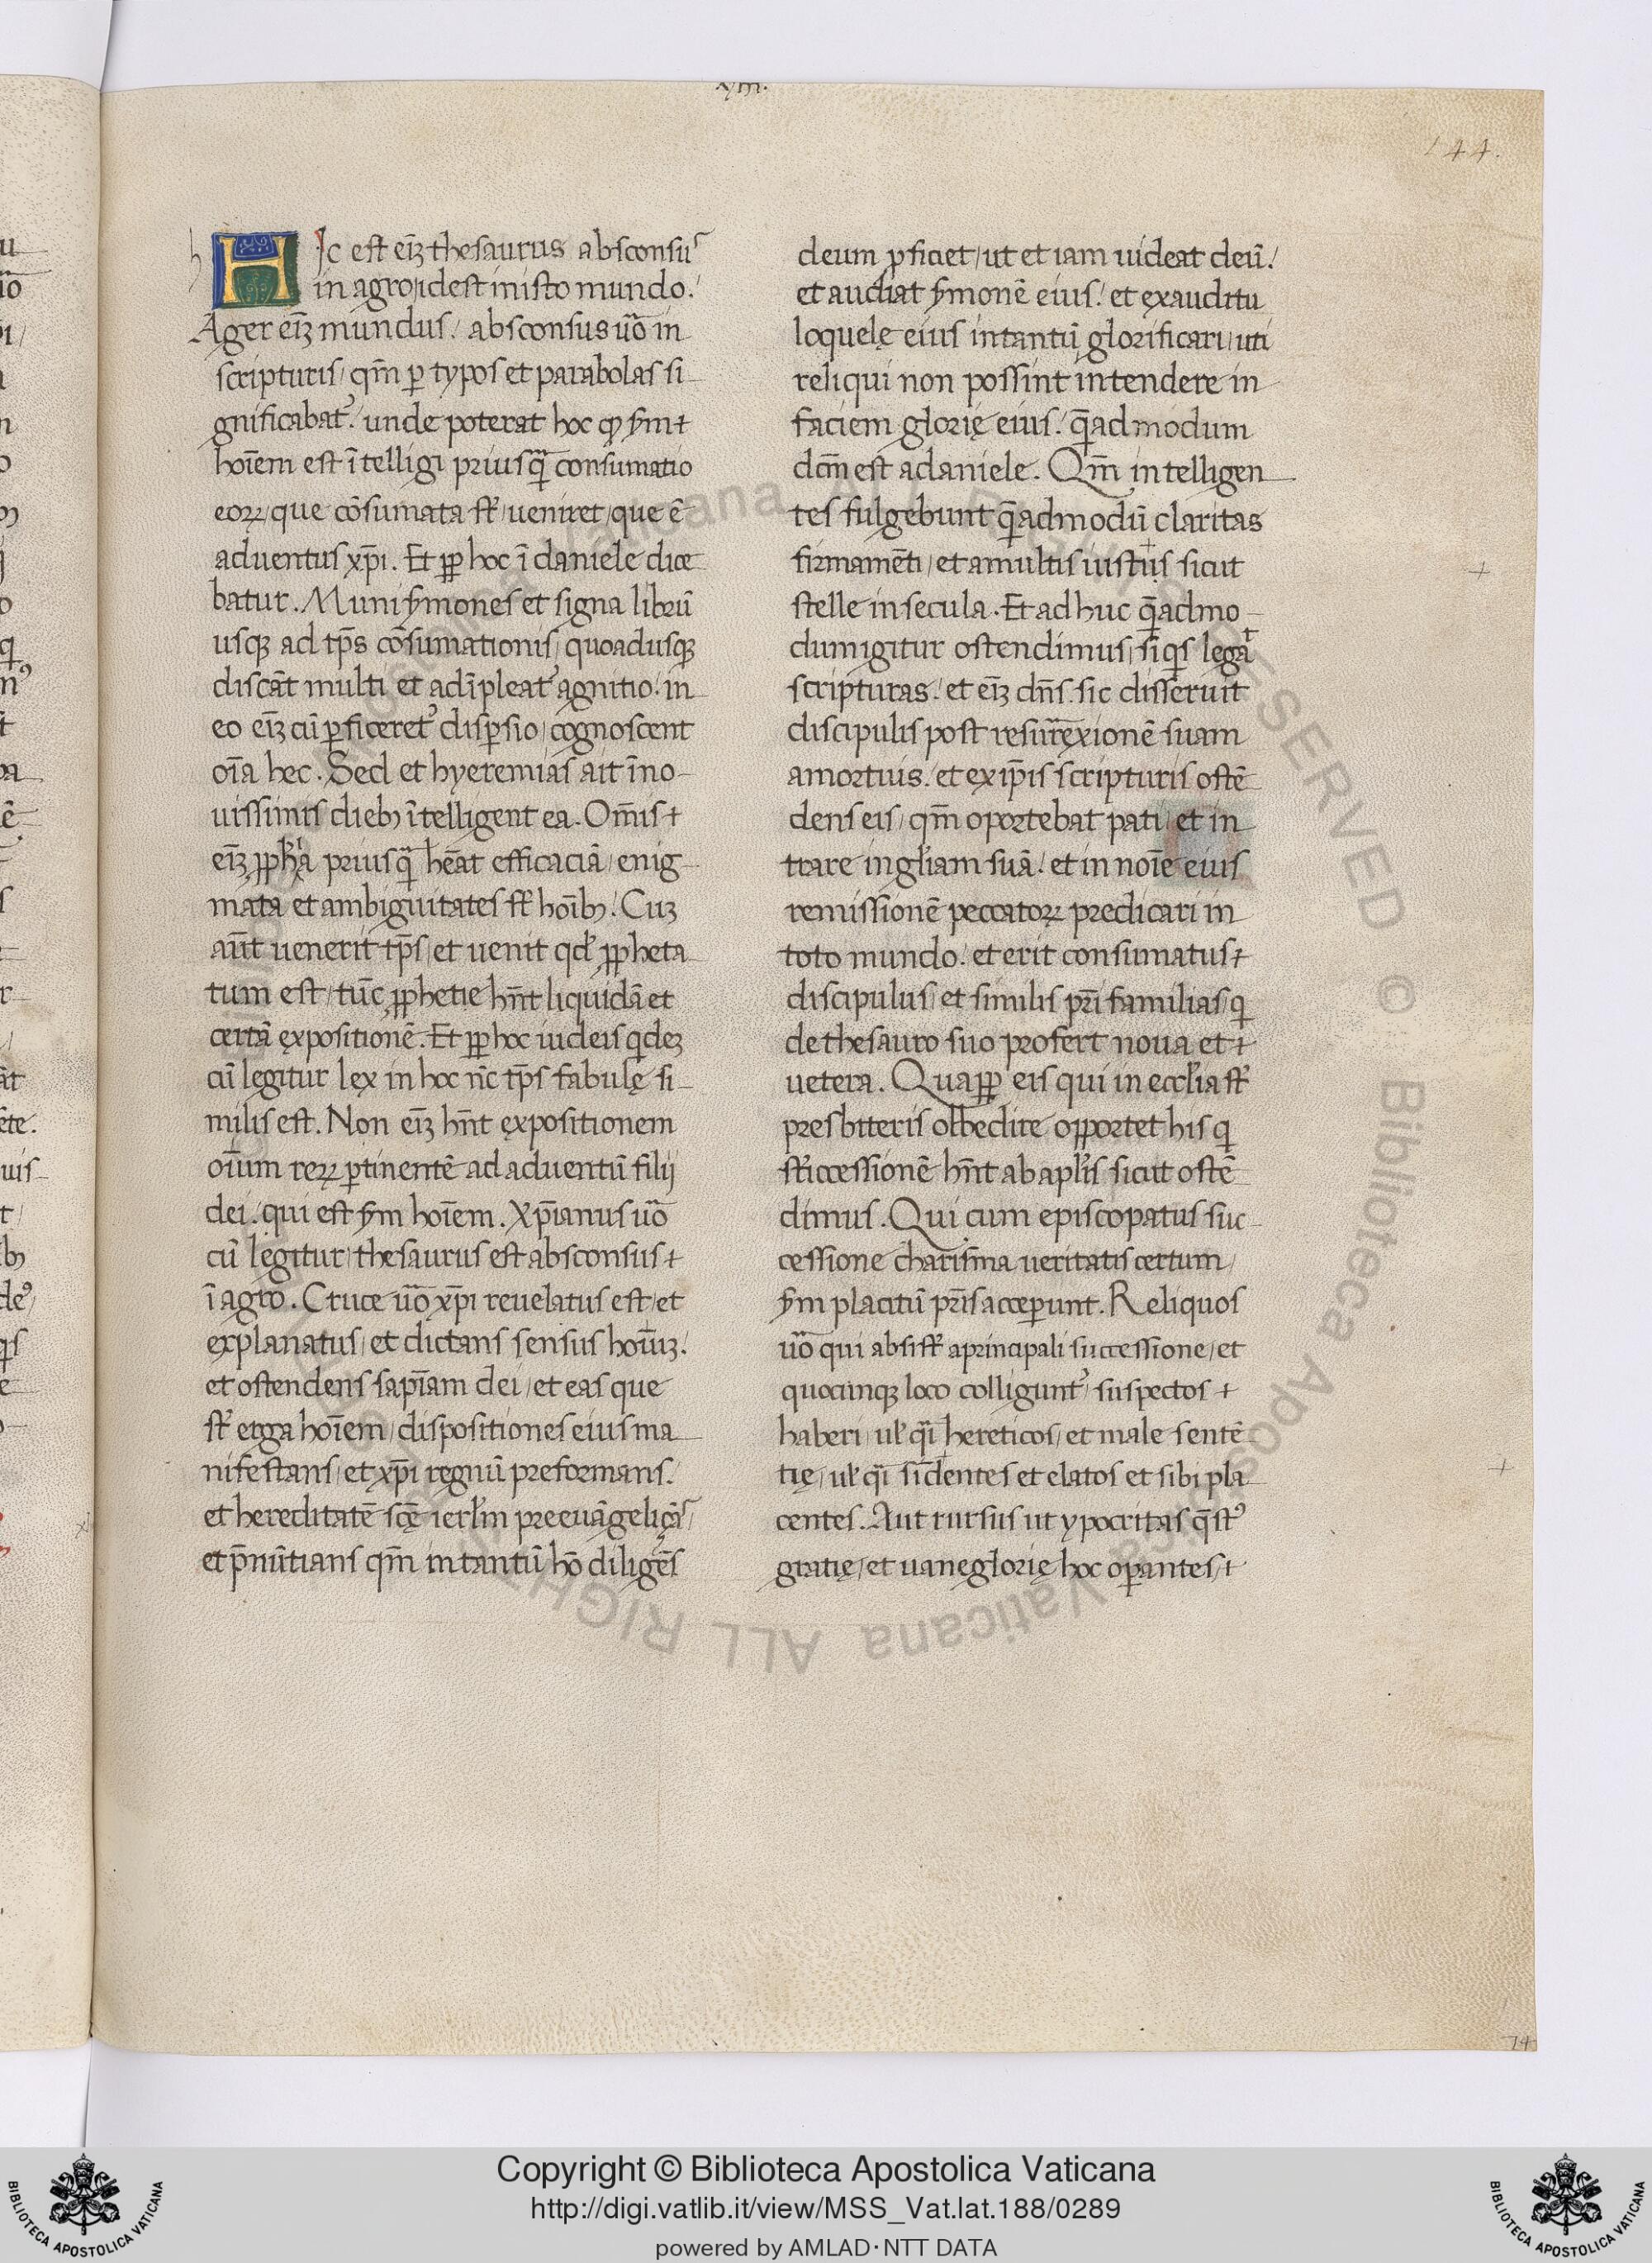 xiii.
144.
h
HIc est eīꝫ thesaurus absconsus
in agro / idest in isto mundo.
Ager eīꝫ mundus / absconsus uo᷑ in
scripturis / qm̄ ꝑ typos et parabolas si
gnificabat᷑. unde poterat hoc qꝫ ẜm
hoīem est ītelligi priusq̄ consumatio
eoꝝ / que cōsumata sūt / ueniret / que ē
aduentus xp̄i. Et ꝓp hoc ī daniele dice
batur. Muni ẜmones et signa librū
usqꝫ ad tp̄s cōsumationis / quoadusqꝫ
discāt multi et adīpleat᷑ agnitio. in
eo eīꝫ cū ꝑficeret᷑ disꝑsio / cognoscent
oīa hec. Sed et hyeremias ait īno
uissimis diebꝫ ītelligent ea. Om̄is
eīꝫ ꝓpħīa priusq̄ hēat efficaciā / enig
mata et ambiguitates sūt hoībꝫ. Cuꝫ
aūt uenerit tp̄s / et uenit qđ ꝓpheta
tum est / tūc ꝓphetie hn̄t liquidā et
certā ęxpositionē. Et ꝓp hoc iudeis qdeꝫ
cū legitur lęx in hoc nc̄ tp̄s fabulę si
milis est. Non eīꝫ hn̄t ęxpositionem
oīum reꝝ ꝑtinentē ad aduentū filij
dei / qui est ẜm hoīem. Xp̄ianus uo᷑
cū legitur / thesaurus est absconsus
ī agro. Cruce uo᷑ xp̄i reuelatus est / et
explanatus / et dictans sensus hoīuꝫ.
et ostendens sapīam dei / et eas que
sūt erga hoīem / dispositiones eius ma
nifestans / et xp̄i regnū preformans.
et hereditatē scę̄ ierłm preeuāgelicās /
et p̄nūtians qm̄ in tantū hō diligēs
deum ꝓficiet / ut et iam uideat deū.
et audiat ẜmonē eius. et ęxauditu
loquelę eius intantū glorificari / uti
reliqui non possint intendere in
faciem glorię eius. q̄admodum
dcm̄ est a daniele. Qm̄ intelligen
tes fulgebunt q̄admodū claritas
firmamēti / et a multis iustus sicut
stelle in secula. Et ad huc q̄admo
dum igitur ostendimus / siqis legat
scripturas. et eīꝫ dn̄s sic disseruit
discipulis post resurręxionē suam
a mortuis. et ex ip̄is scripturis ostē
dens eis / qm̄ oportebat pati / et in
trare in głiam suā. et in noīe eius
remissionē peccatoꝝ predicari in
toto mundo. et erit consumatus
discipulus / et similis pr̄i familias / q
de thesauro suo profert noua et
uetera. Quaꝓp eis qui in eccłia sūt
presbiteris obbedire opportet his q
successionē hn̄t ab apłis sicut ostē
dimus. Qui cum episcopatus suc
cessione charisma ueritatis certum /
ẜm placitū pr̄is acceꝑunt. Reliquos
uo᷑ qui absisūt a principali successione / et
quocunqꝫ loco colligunt᷑ / suspectos
haberi / uł qi hereticos / et male sentē
tię / uł qi sidentes et elatos et sibi pla
centes. Aut rursus ut ypocritas q̄st᷑
gratię / et uane glorię hoc oꝑantes
74
Copyright © Biblioteca Apostolica Vaticana
http://digi.vatlib.it/view/MSS_Vat.lat.188/0289
powered by AMLAD·NTT DATA
BIBLIOTECA APOSTOLICA VATICANA
BIBLIOTECA APOSTOLICA VATICANA